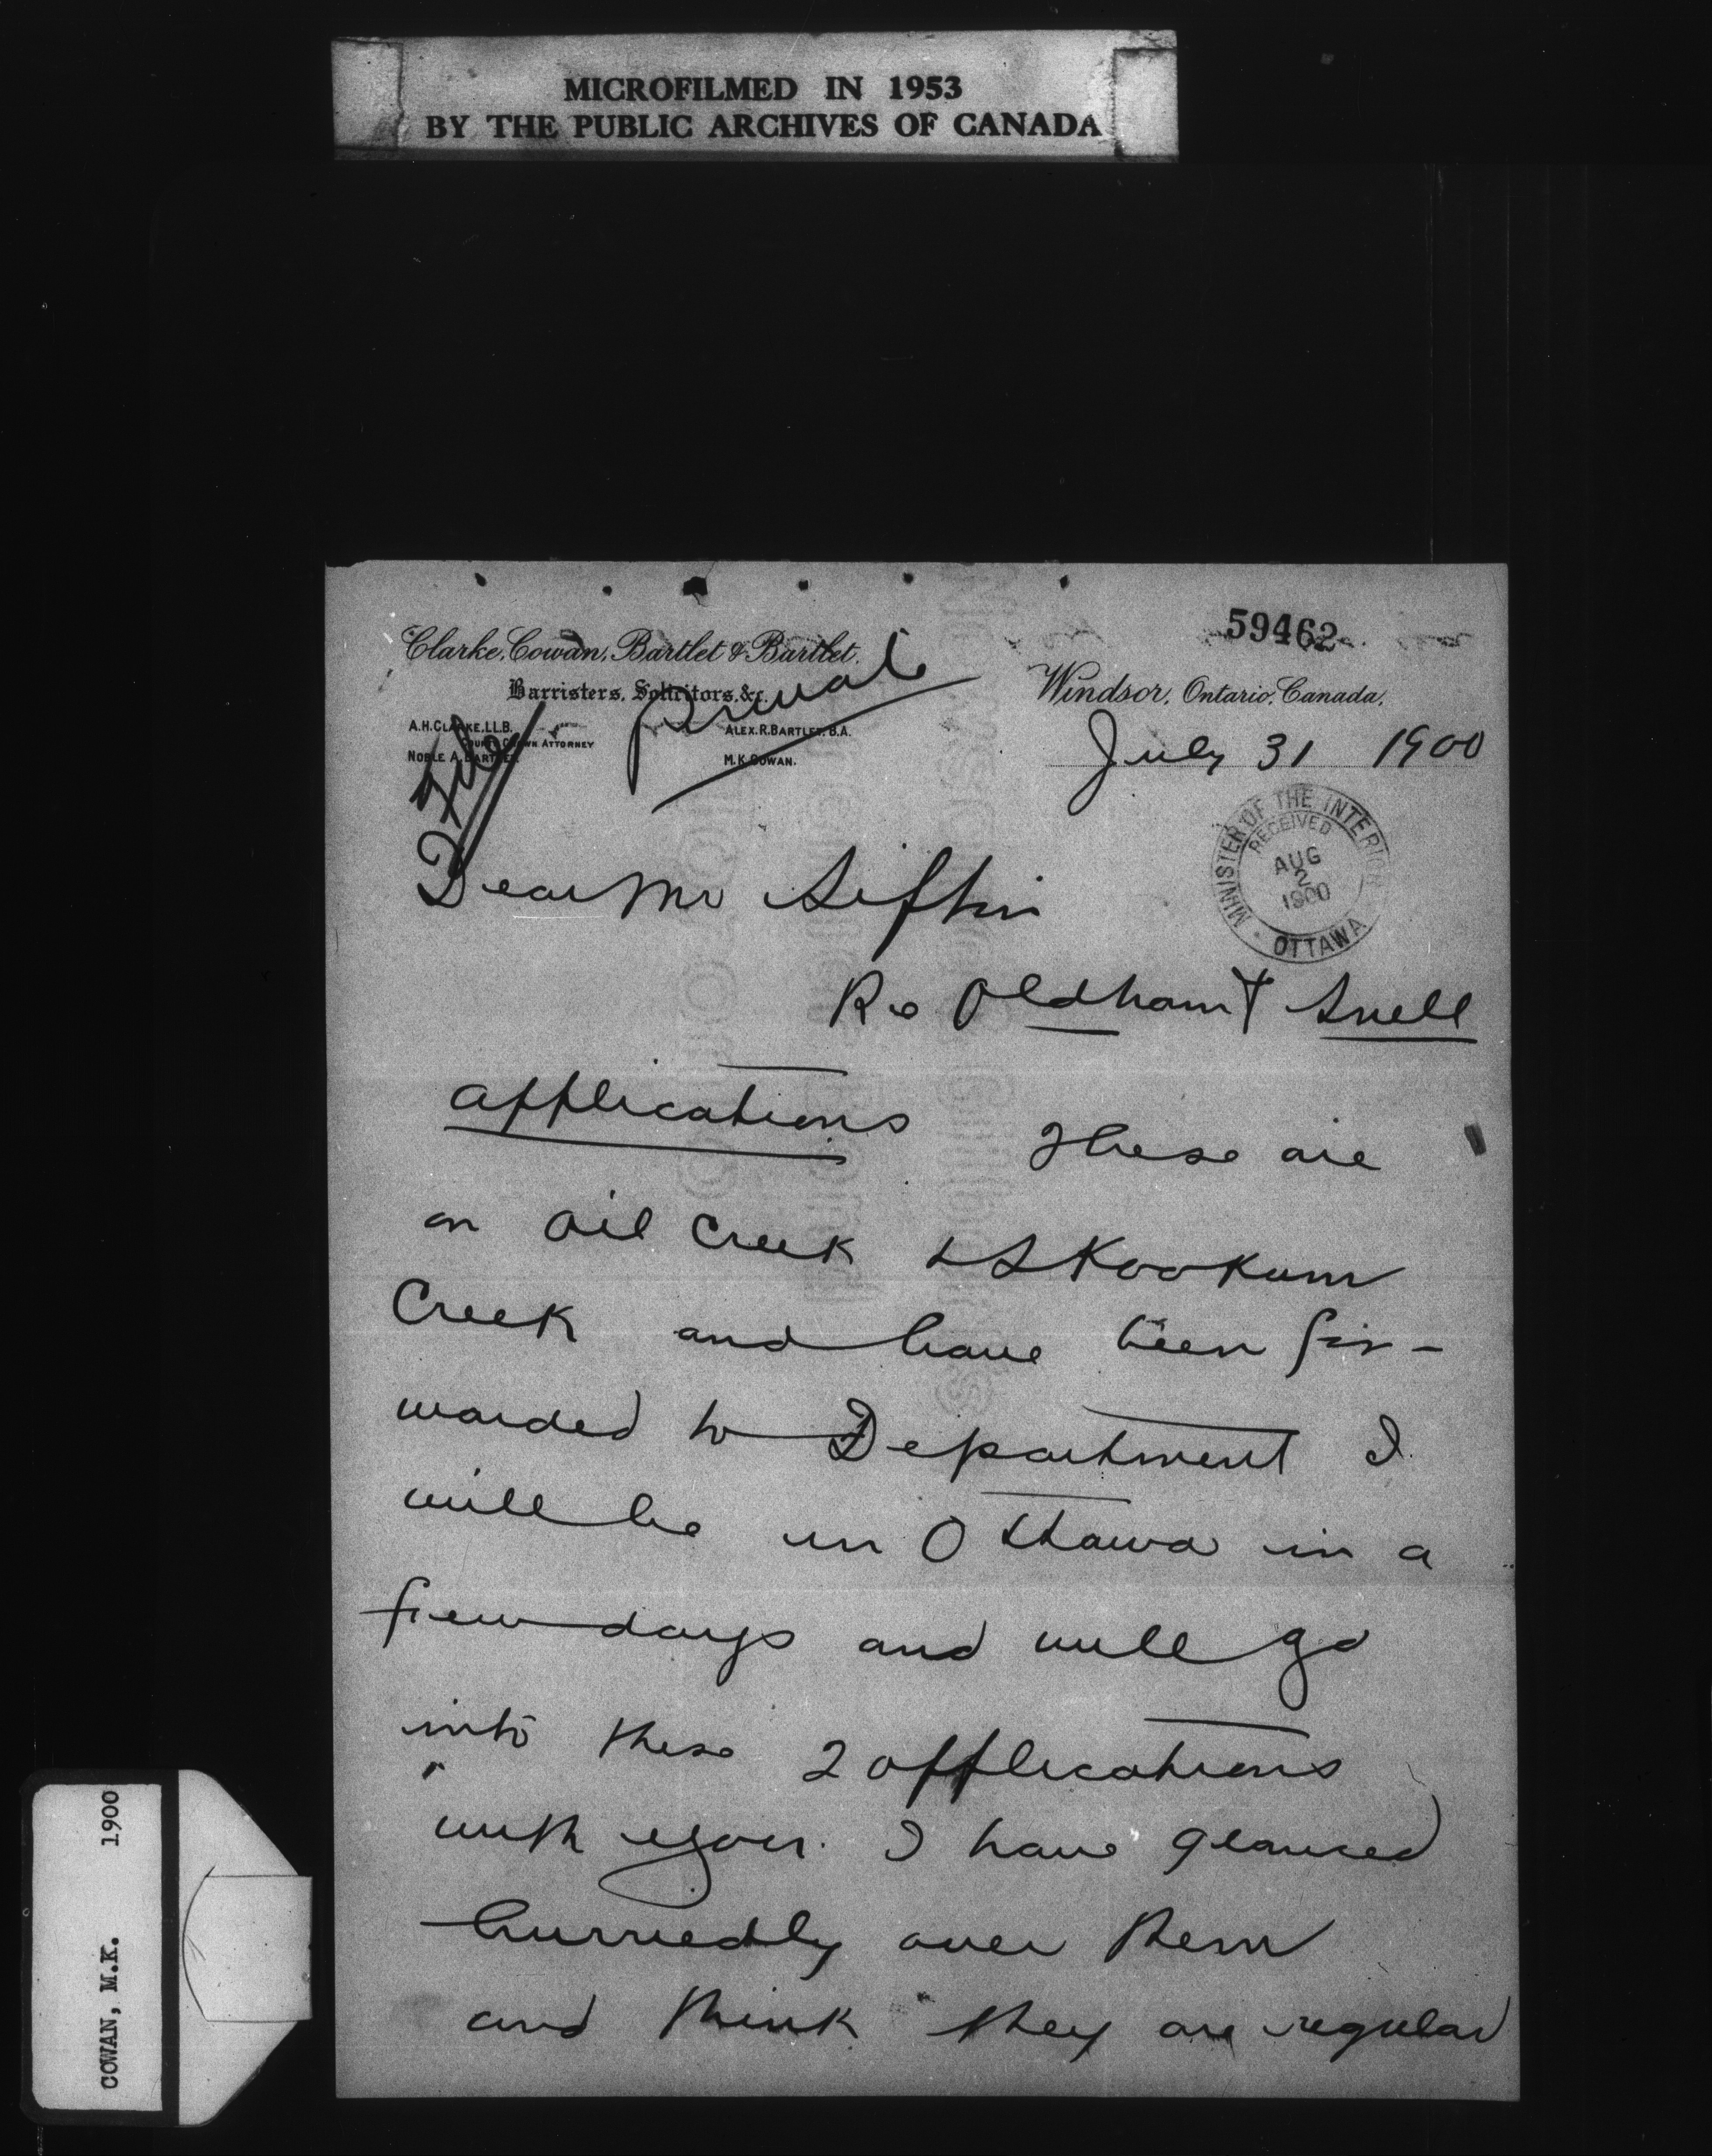 MICROFILMED IN 1953
BY THE PUBLIC ARCHIVES OF CANADA
59462
Clarke, Cowan, Bartlet & Bartlet.
Barristers, Solicitors, &c.
A.H. CLARKE, LL.B.
COUNTY CROWN ATTORNEY
NOBLE A. BARTLET.
ALEX. R. BARTLET. B.A.
M.K. COWAN.
File
Private
Windsor, Ontario, Canada,
July 31 1900
MINISTER OF THE INTERIOR
RECEIVED
AUG
2
1900
OTTAWA
Dear Mr Sifton
Re Oldham & Snell
applications These are
on Oil Creek & Skookum
Creek and have been for-
warded to Department I
will be in Ottawa in a
few days and will go
into these 2 applications
with you. I have glanced
hurriedly over them
and think they are regular
COWAN, M.K. 1900